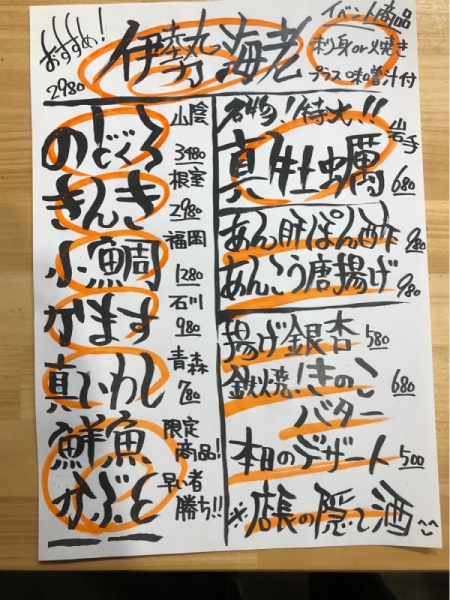 おすすめ!
伊勢海老
2980
イベント商品
刺身or焼き
プラス味噌汁付
のどぐろ
山陰
3480
きんき
根室
2980
小鯛
福岡
1280
かます
石川
980
真いわし
青森
780
鮮魚
かぶと
限定
商品!
早い者
勝ち!!
名物!特大!!!
真牡蠣
岩手
680
あん肝ぽん酢
980
あんこう唐揚げ
980
揚げ銀杏
580
鉄焼!きのこ
バター
680
本日のデザート
500
※店長の隠し酒